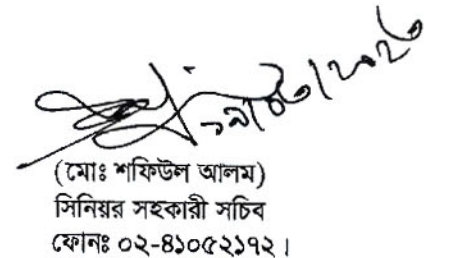 ১৯/০৩/২০২৩
(মোঃ শফিউল আলম)
সিনিয়র সহকারী সচিব
ফোনঃ ০২-৪১০৫২১৭২।